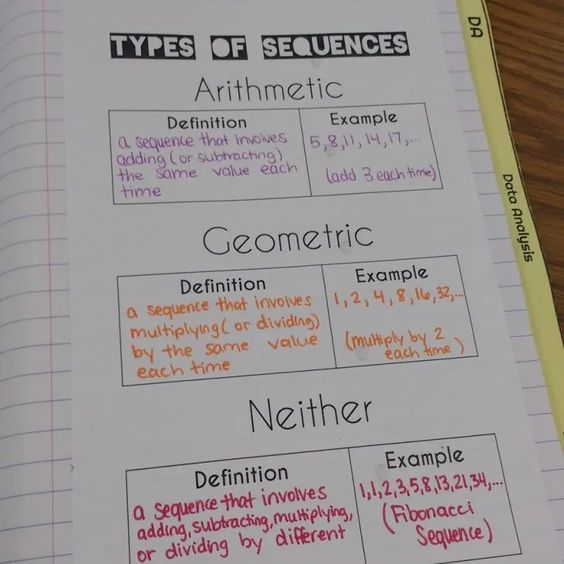 TYPES OF SEQUENCES
Arithmetic
Definition
a sequence that involves
adding (or subtracting)
the same value each
time
Example
5, 8, 11, 14, 17,...
(add 3 each time)
Geometric
Definition
a sequence that involves
multiplying (or dividing)
by the same value
each time
Example
1, 2, 4, 8, 16, 32,...
(multiply by 2
each time)
Neither
Definition
a sequence that involves
adding, subtracting, multiplying,
or dividing by different
Example
1,1,2,3,5,8,13,21,34,...
(Fibonacci
Sequence)
DA
Data Analysis